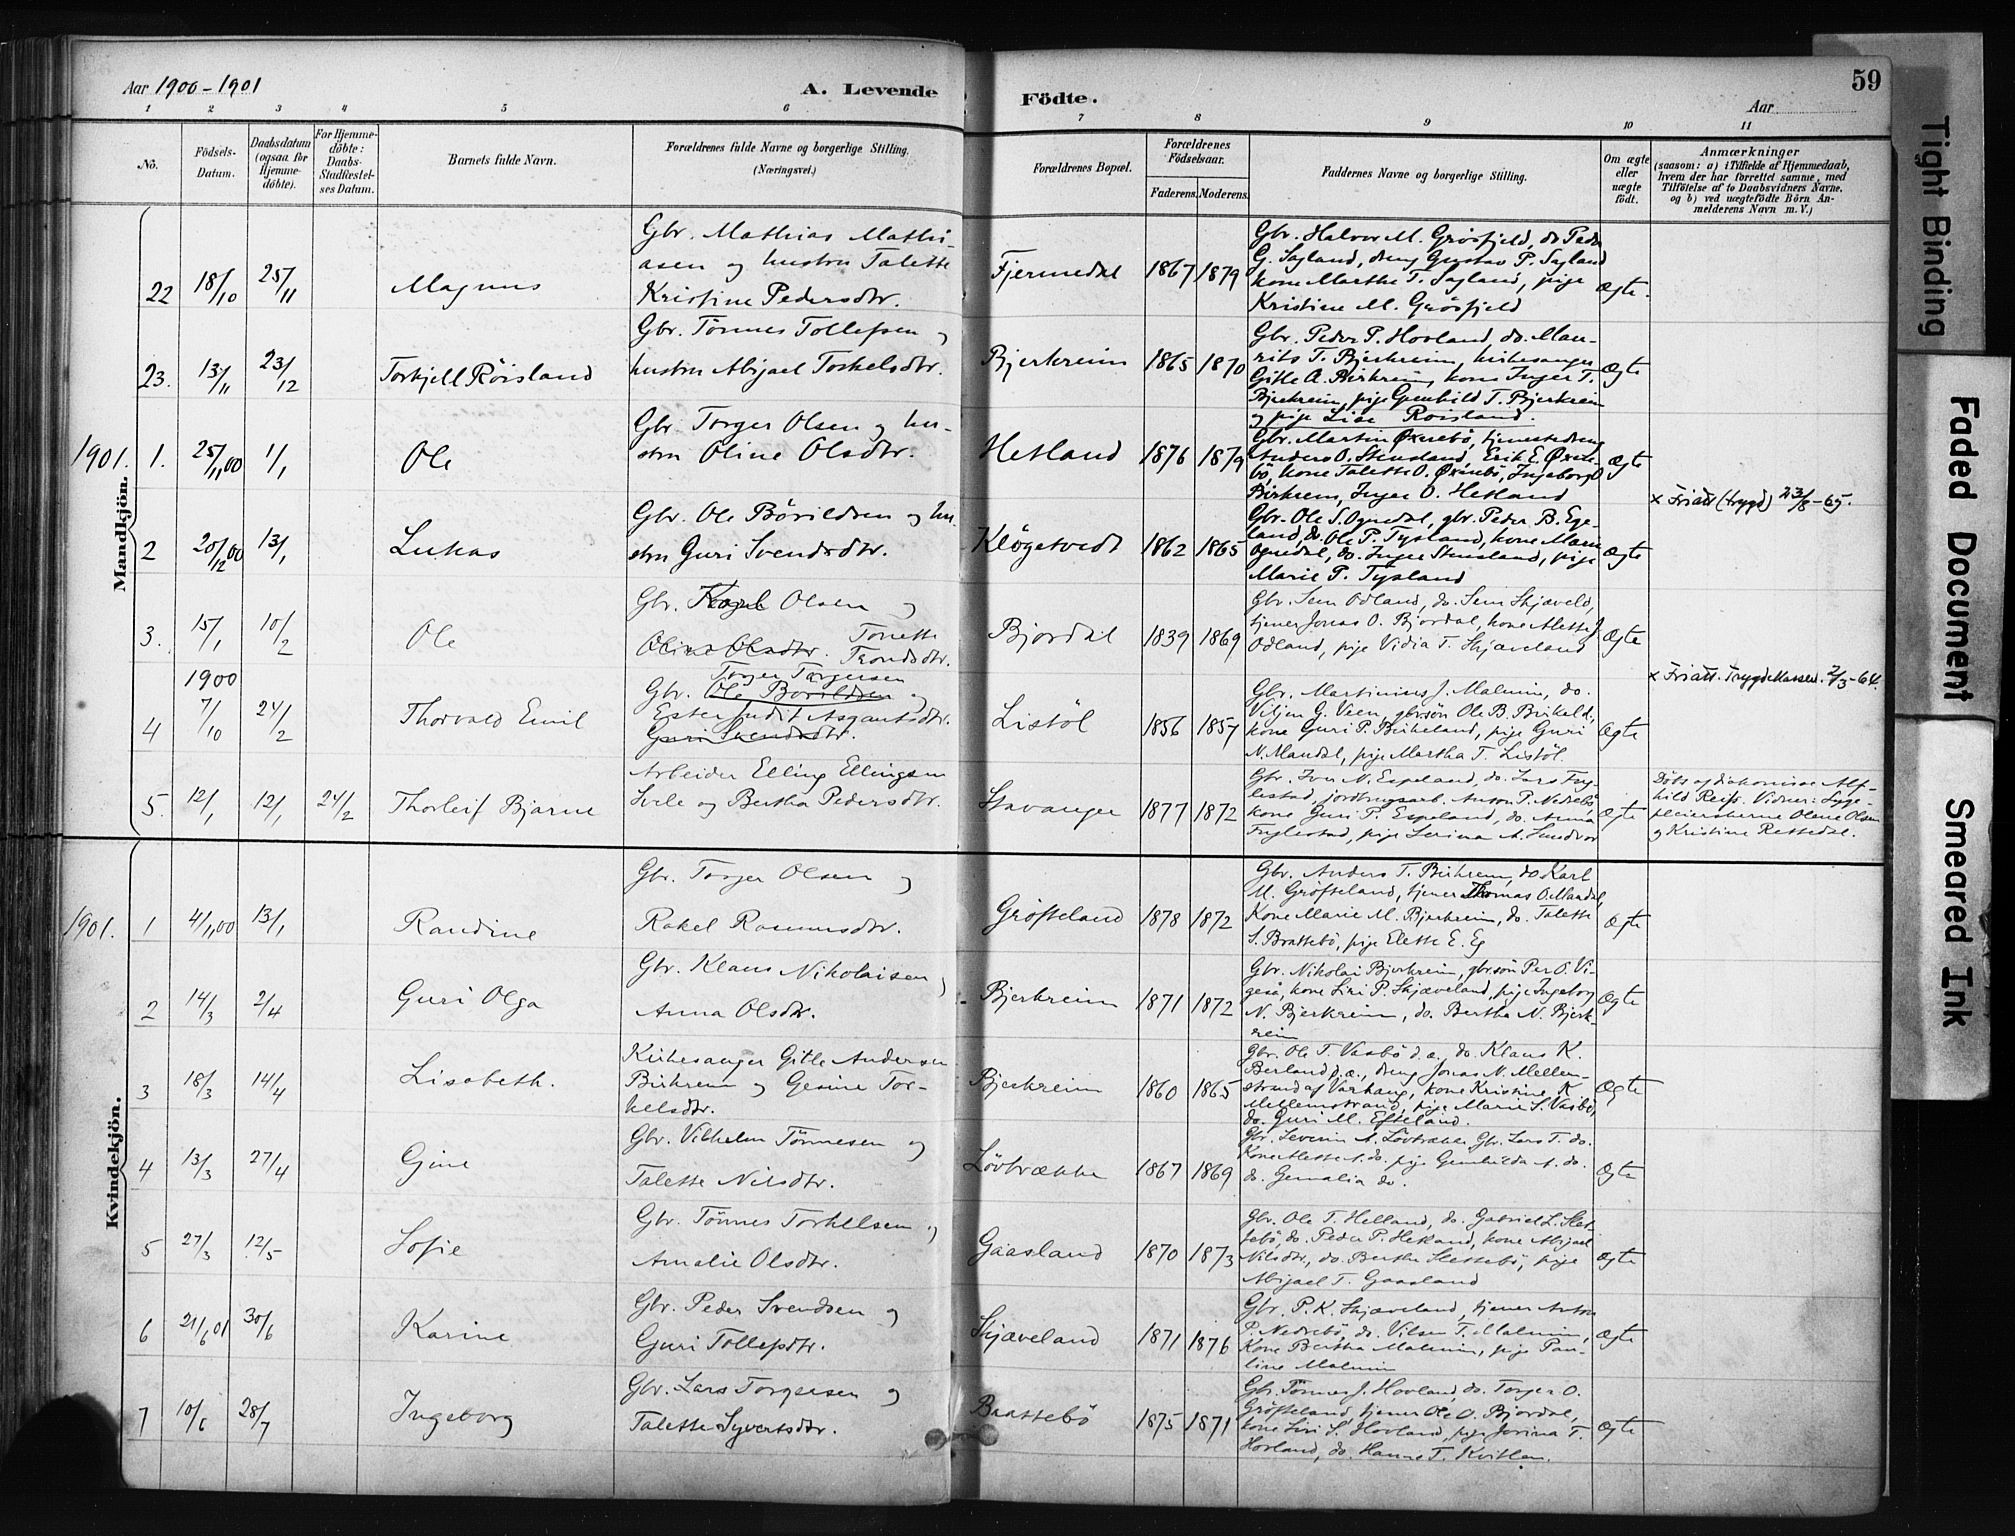 Aar 1900-1901
A. Levende Födte.
Aar
59
1 2 3 4 5 6 7 8 9 10 11
No.
Födsels-Datum.
Daabsdatum (ogsaa for Hjemme-döbte).
For Hjemme-döbte: Daabs-Stadfæstel-ses Datum.
Barnets fulde Navn.
Forældrenes fulde Navne og borgerlige Stilling. (Næringsvei.)
Forældrenes Bopæl.
Forældrenes Födselsaar.
Faderens. Moderens.
Faddernes Navne og borgerlige Stilling.
Om ægte eller uægte födt.
Anmærkninger
(saasom: a) i Tilfælde af Hjemmedaab, hvem der har forrettet samme, med Tilföielse af to Daabsvidners Navne, og b) ved uægtefödte Börn An-melderens Navn m. V.)
Mandkjön.
22 18/10 25/11 Magnus
Gbr. Mathias Mathi-
asen og hustru Talette
Kristine Pedersdtr.
Fjermedal 1867 1879
Gbr. Halvor M. Grøsfjeld, do Peder
G. Sagland, dreng Gustav P. Sagland
kone Marthe T. Sagland, pige
Kristine M. Grösfjeld
Ægte.
23. 13/11 23/12 Torkjell Röisland
Gbr. Tönnes Tollefsen og
hustru Abigael Torkelsdtr.
Bjerkreim 1865 1870
Gbr. Peder P. Hovland, do. Mau-
rits T. Bjerkreim, kirkesanger
Gitle A. Birkreim, kone Inger T.
Bjerkreim, pige Gunhild T. Bjerkreim
og pige Lise Roisland.
Ægte
1901. 1. 25/11 00 1/1 Ole
Gbr. Torger Olsen og hu-
stru Oline Olsdtr.
Hetland 1876 1879
Gbr. Martin Øxnebö, tjenestedreng
Anders O. Stensland, Erik E. Øxne-
bö, kone Talette O. Øxnebö, Ingeborg O
Birkrem, Inger O. Hetland
Ægte
x Friatt (trygd) 23/8-65.
2 20/12 00 13/1 Lukas
Gbr. Ole Börildsen og hu-
stru Guri Svendsdtr.
Kløgetvedt 1862 1865
Gbr. Ole S. Ognedal, gbr. Peder B. Ege-
land, do. Ole P. Tysland, kone Maren
Ognedal, do. Inger Stensland, pige
Marie P. Tysland
Ægte
3. 15/1 10/2 Ole
Gbr. Olsen og
Oline Olsdtr. Tonette Trondsdtr.
Bjordal 1839 1869
Gbr. Sem Odland, do. Sem Skjæveld,
tjener Jonas O. Bjordal, kone Alette J.
Odland, pige Vidia T. Skjæveland
Ægte
x Friatt. Trygdekassen. 2/3-64.
1900
4 7/10 24/2 Thorvald Emil
Torger Torgersen
Gbr. Ole Börildsen og
Ester Judit Asgautsdtr.
Guri Svendsdtr.
Listöl 1856 1857
Gbr. Martinius J. Malmin, do.
Viljen G. Veen, gbrsön Ole B. Birkeld,
kone Guri P. Birkeland, pige Guri
N. Mandal, pige Martha T. Listöl.
Ægte
5. 12/1 12/1 24/2 Thorleif Bjarne
Arbeider Elling Ellingsen
Svele og Bertha Pedersdtr.
Stavanger 1877 1872
Gbr. Iver N. Espeland, do. Lars Fug-
lestad, jordbrugsarb. Anton P. Nedrebö
kone Guri T. Espeland, do. Anna
Fuglestad, pige Serina A. Sundvor
Ægte
Döbt af diakonisse Alf-
hild Reiss. Vidner: Syge-
pleierskerne Olene Olsen
og Kristine Rettedal.
Kvindekjön.
1901. 1 4/1 00 13/1 Randine
Gbr. Torger Olsen og
Rakel Rasmusdtr.
Gröfteland 1878 1872
Gbr. Anders T. Birkrem, do Karl
M. Gröfteland, tjener Thomas O. Mandal
Kone Marie M. Bjerkreim, do. Talette
S. Brattebö, pige Elette E. Eg
Ægte
2 14/3 2/4 Guri Olga
Gbr. Klaus Nikolaisen,
Anna Olsdtr.
Bjerkreim 1871 1872
Gbr. Nikolai Bjerkreim, gbrsön Per O. Vi-
geså, kone Siri P. Skjæveland, pige Ingeborg
N. Bjerkreim, do. Bertha N. Bjerk-
reim
Ægte
3 18/3 14/4 Lisabeth.
Kirkesanger Gitle Andersen
Birkrem og Gesine Tor-
kelsdtr.
Bjerkreim 1860 1865
Gbr. Ole T. Vasbö d.æ., do. Klaus K.
Berland d.æ., dreng Jonas N. Mellem-
strand af Varhaug, kone Kristine K
Mellemstrand, pige Marie S. Vasbö,
do. Guri M. Efteland.
Ægte
4 13/3 27/4 Gine
Gbr. Vilhelm Tönnesen og
Talette Nilsdtr.
Løvbrække 1867 1869
Gbr. Severin A. Løvbrække Gbr. Lars T. do.
Kone Alette A. do. pige Gunhilda A. do.
do. Gemalia do.
Ægte
5 27/3 12/5 Sofie
Gbr. Tönnes Torkelsen og
Amalie Olsdtr.
Gaasland 1870 1873
Gbr. Ole T. Helland, do. Gabriel L. Slet-
tebö, do. Peder P. Hetland, kone Abigael
Nilsdtr., do. Berthe Slettebö, pige
Abigael T. Gaasland
Ægte
6 21/6 01 30/6 Karine
Gbr. Peder Svendsen og
Guri Tollefsdtr.
Skjæveland 1871 1876
Gbr. P. K. Skjæveland, tjener Anton
P. Nedrebö, do. Vilsen T. Malmin,
Kone Bertha Malmin, pige Pau-
line Malmin
Ægte
7 10/6 28/7 Ingeborg
Gbr. Lars Torgersen og
Talette Syvertsdtr.
Brattebö 1875 1871
Gbr. Tönnes J. Hovland, do. Torger O.
Gröfteland, tjener Ole O. Bjordal,
kone Siri S. Hovland, pige Jorina T.
Hovland, do. Hanne T. Kvitlen.
Ægte
Tight Binding
Faded Document
Smeared Ink